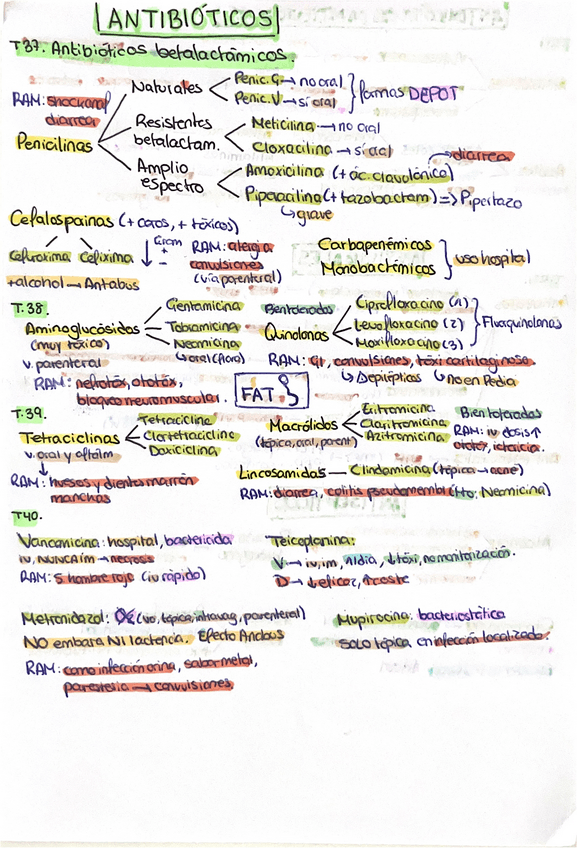 ANTIBIÓTICOS
T37. Antibióticos betalactámicos.
Naturales Penic. G → no oral
Penic. V → sí oral
formas DEPOT
RAM: shock anaf
diarrea
Penicilinas
Resistentes
betalactam.
Meticilina → no oral
Cloxacilina → sí oral
Amplio
espectro
Amoxicilina (+ ác. clavulónico) → diarrea
Piperacilina (+ tazobactam) => Pipertazo
↳ grave
Cefalospoinas (+ caros, + tóxicos)
Cefuroxima Cefixima
↓ Gram
+
-
RAM: alergia
convulsiones
(vía parenteral)
+alcohol → Antabus
Carbapenémicos
Monobactémicos
uso hospital
T.38
Aminoglucósidos
(muy tóxico)
v. parenteral
Gentamicina
Tobramicina
Neomicina
↳ oral (flora)
RAM: nefrotóx, ototóx,
bloqueo neuromuscular.
Bentolerados
Quinolonas
Ciprofloxacino (1)
Levofloxacino (2)
Moxifloxacino (3)
Fluorquinolonas
RAM: GI, convulsiones, tóxi cartilaginoso.
↳ D epirépticos ↳ no en Pedia
FAT
T.39
Tetraciclinas
v. oral y oftálm
Tetraciclina
Clortetraciclina
Doxiciclina
↓
RAM: huesos y dientes marrón
manchas
Macrólidos
(tópica, oral, parent)
Eritromicina
Claritromicina
Azitromicina
Bien tolerados
RAM: iv dosis ↑
ototóx, ictericia.
Lincosamidas — Clindamicina (tópica → acné)
RAM: diarrea, colitis pseudomembr (tto: Neomicina)
T40.
Vancomicina: hospital, bactericida
iv, NUNCA im → necrosis
RAM: S hombre rojo (iv rápido)
Teicoplanina:
V → iv, im, 1/día, ↓tóxi, no monitorización.
D → ↓eficaz, ↑coste
Metronidazol: (vo, tópica, intravag, parenteral)
NO embara NI lactancia. Efecto Antabus
RAM: como infección orina, sabor metal,
parestesia → convulsiones.
Mupirocina: bacteriostática
Solo tópica en infección localizada.